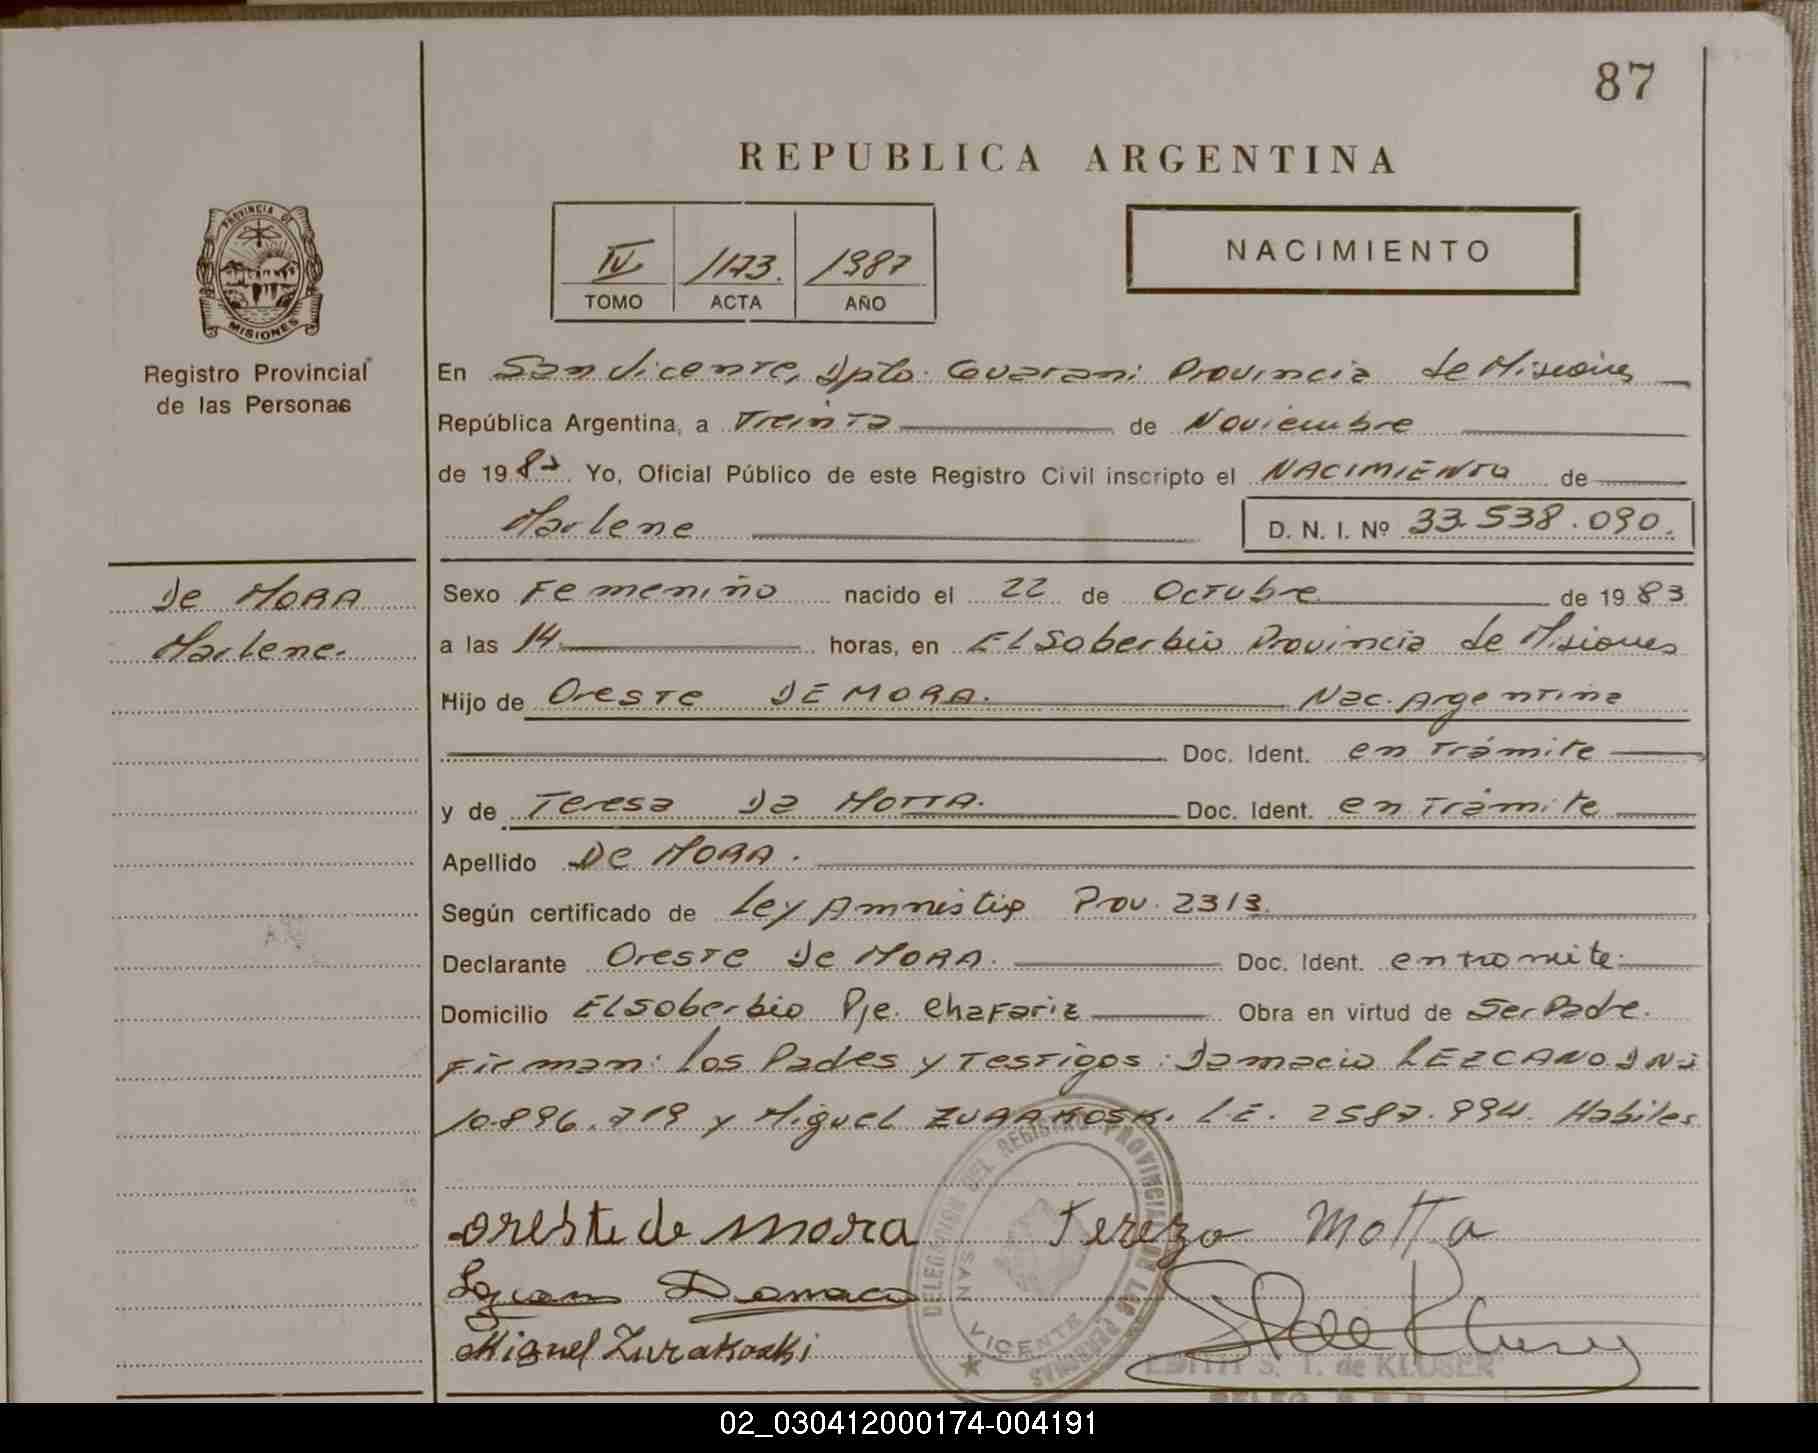 87
REPUBLICA ARGENTINA
PROVINCIA DE
MISIONES
Registro Provincial
de las Personas
IV 1173. 1987
TOMO ACTA AÑO
NACIMIENTO
En San Vicente, Dpto. Guarani Provincia de Misiones
República Argentina, a Treinta de Noviembre
de 1987 Yo, Oficial Público de este Registro Civil inscripto el NACIMIENTO de
Marlene D. N. I. Nº 33.538.090.
De MORA
Marlene.
Sexo Femenino nacido el 22 de Octubre de 1983
a las 14 horas, en El Soberbio Provincia de Misiones
Hijo de Oreste DE MORA. Nac. Argentina
Doc. Ident. en Trámite
y de Teresa Da MOTTA. Doc. Ident. en Trámite
Apellido De MORA.
Según certificado de Ley Amnistia Prov. 2313.
Declarante Oreste De MORA. Doc. Ident. en tramite.
Domicilio El Soberbio Pje. Chafariz Obra en virtud de Ser Padre.
Firman: los Padres y Testigos: Damacio LEZCANO DNI
10.896.719 y Miguel ZURAKOSKI L.E. 2587.994. Habiles
oreste de mora Tereza Motta
Damacio
Miguel Zurakoski
DELEGACION DEL REGISTRO PROVINCIAL DE LAS PERSONAS
SAN VICENTE
EDITH S. T. de KLUSER
02_030412000174-004191